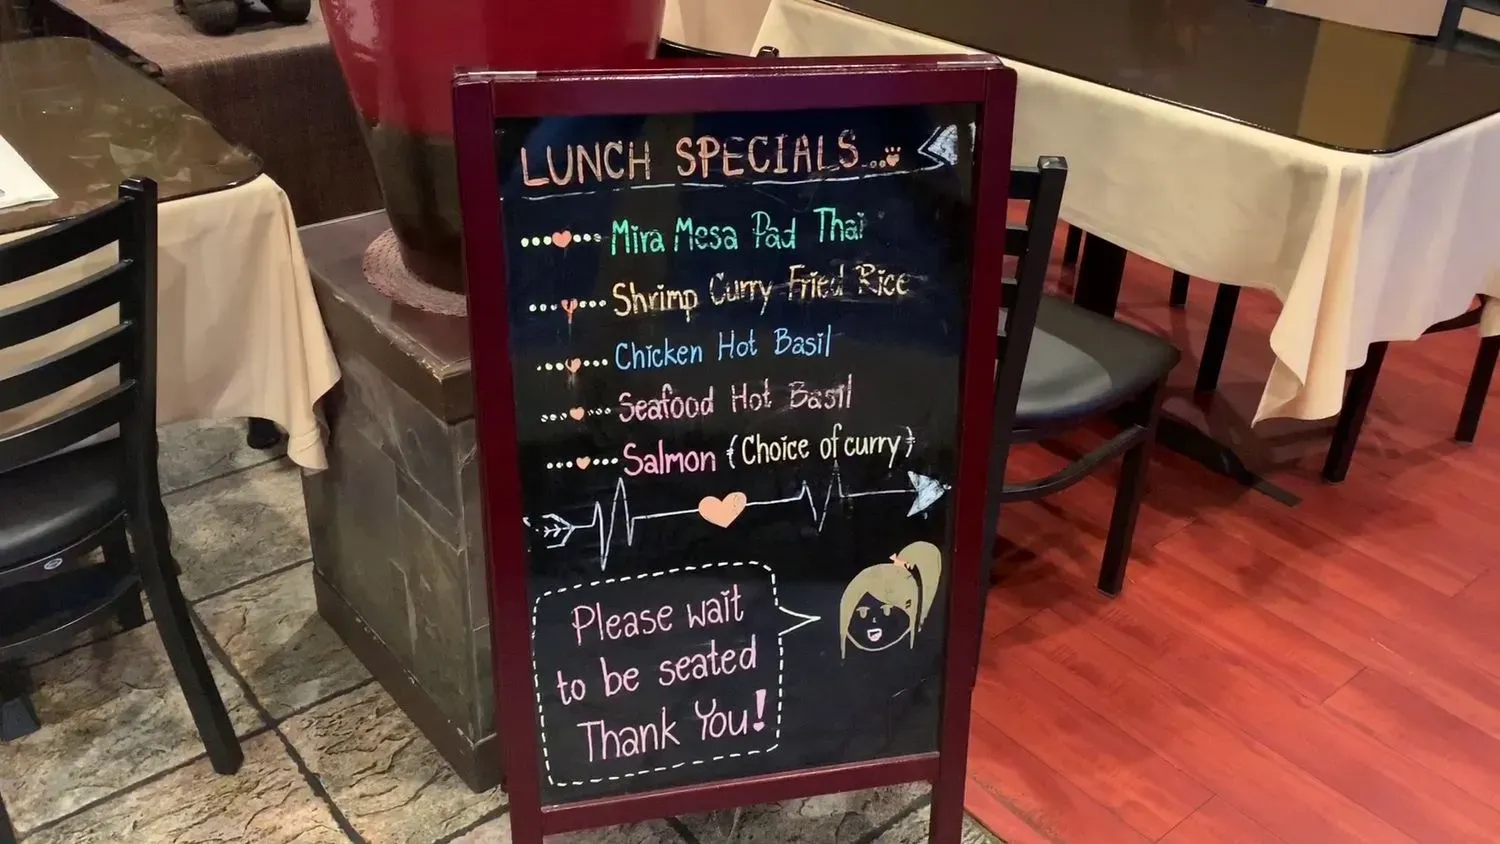 LUNCH SPECIALS...
Mira Mesa Pad Thai
Shrimp Curry Fried Rice
Chicken Hot Basil
Seafood Hot Basil
Salmon (Choice of curry)
Please wait
to be seated
Thank You!